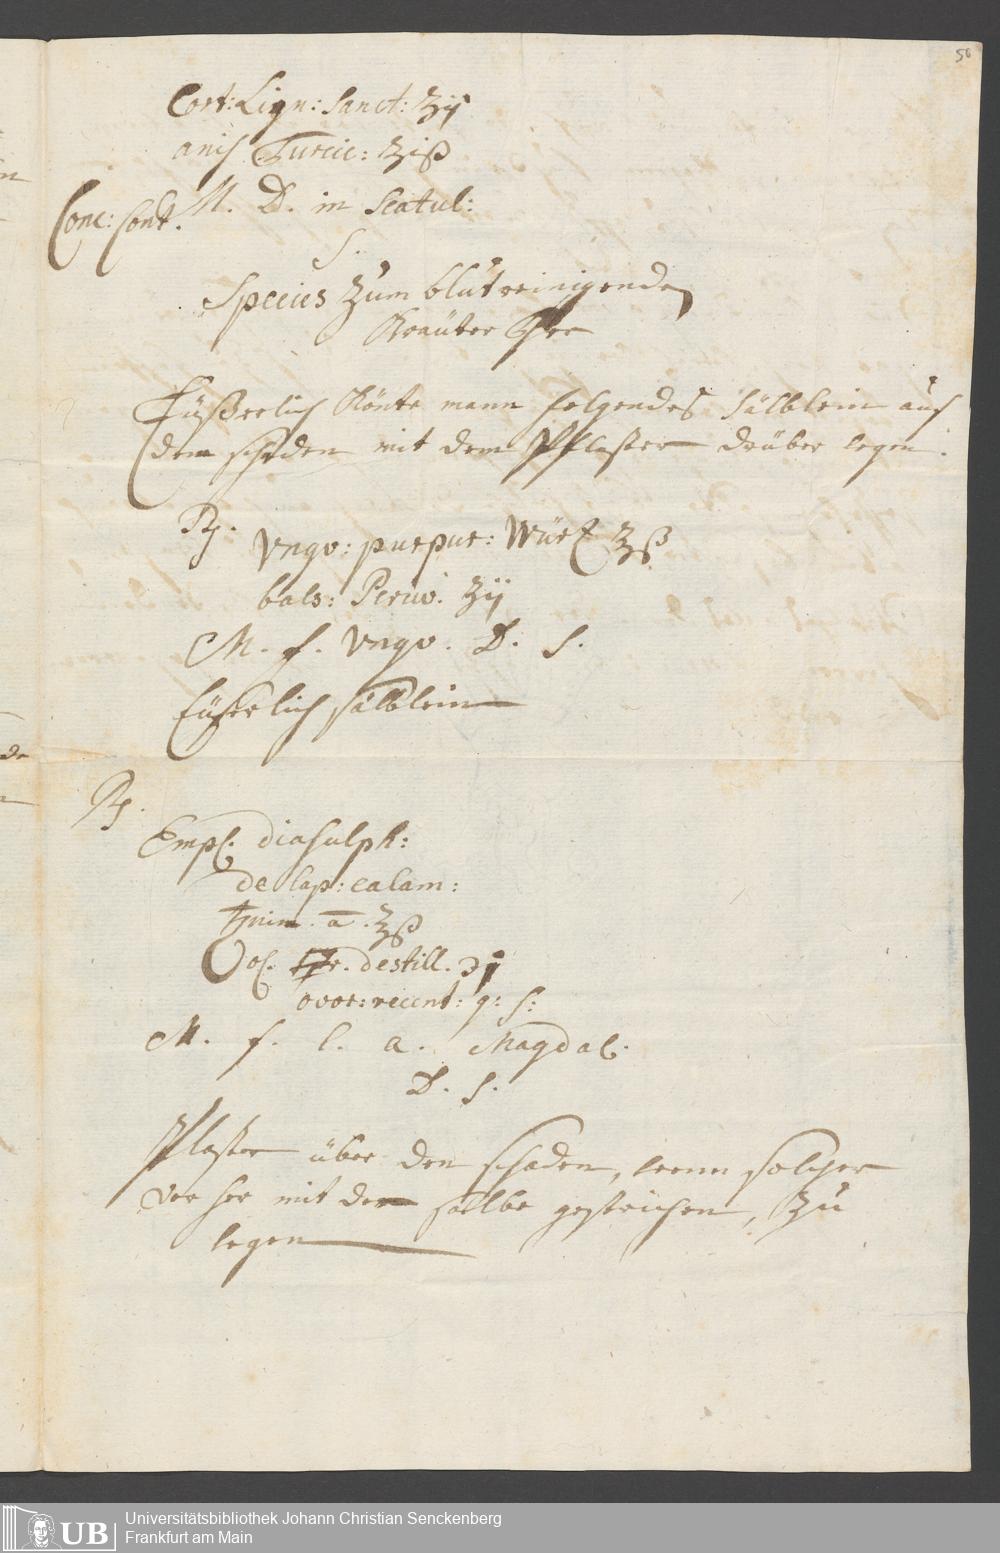 50
Cort: Lign: Sanct: ʒij
anis Turcic: ʒiß
Conc: Cont. M. D. in Scatul:
S.
Species zum blutreinigenden
Kräuter Thee
Eüßerlich könte mann folgendes sälblein auf
den schaden mit dem Pflaster drüber legen.
Rp.
Vngv: purpur: Würtz ʒß
bals: Peruv. ʒij
M. f. Vngv. D. S.
Eüserlich sälblein
Rp.
Empl. diasulph:
de lap: calam:
min. a ʒß
Ol. destill. ℈j
ovor: recent: q: s:
M. f. l. a. Magdal.
D. S.
Pflaster über den schaden, wenn solcher
vorher mit der salbe gestrichen, zu
legen
UB Universitätsbibliothek Johann Christian Senckenberg
Frankfurt am Main